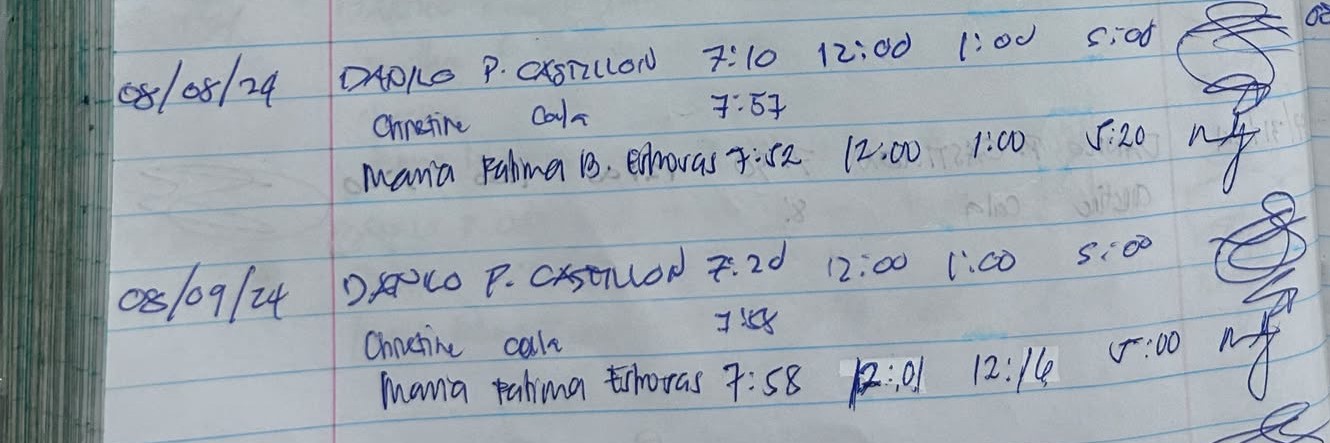 08/08/24 DANILO P. CASTILLON 7:10 12:00 1:00 5:00
Christine Cala 7:57
Maria Fatima B. 7:52 12:00 1:00 5:20
08/09/24 DANILO P. CASTILLON 7:20 12:00 1:00 5:00
Christine Cala 7:58
Maria Fatima 7:58 12:01 12:16 5:00